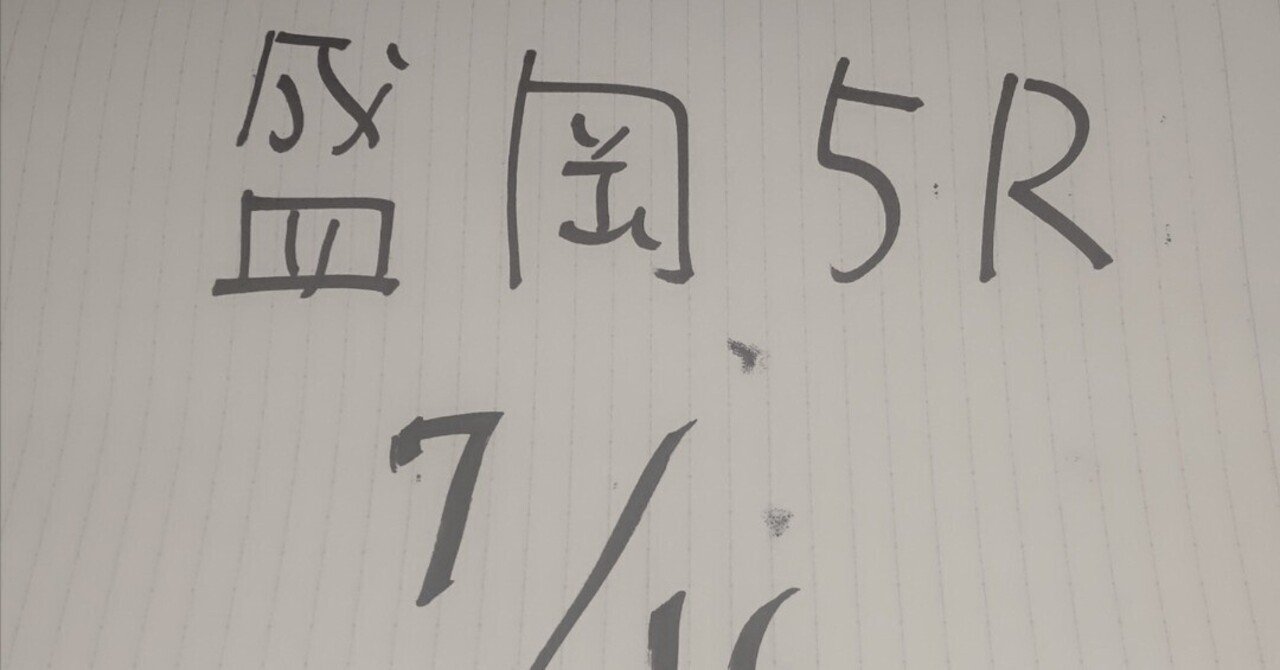 盛岡5R
7/1